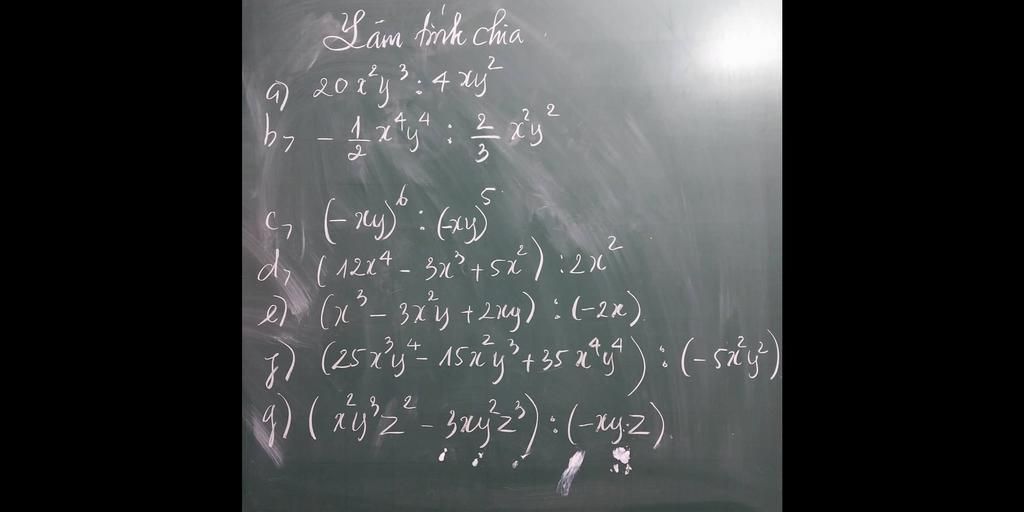 Làm tính chia.
a) 20x²y³ : 4xy²
b, -1/2 x⁴y⁴ : 2/3 x²y²
c, (-xy)⁶ : (-xy)⁵
d, (12x⁴ - 3x³ + 5x²) : 2x²
e) (x³ - 3x²y + 2xy) : (-2x)
f) (25x³y⁴ - 15x²y³ + 35x⁴y⁴) : (-5x²y²)
g) (x²y³z² - 3xy²z³) : (-xy.z)